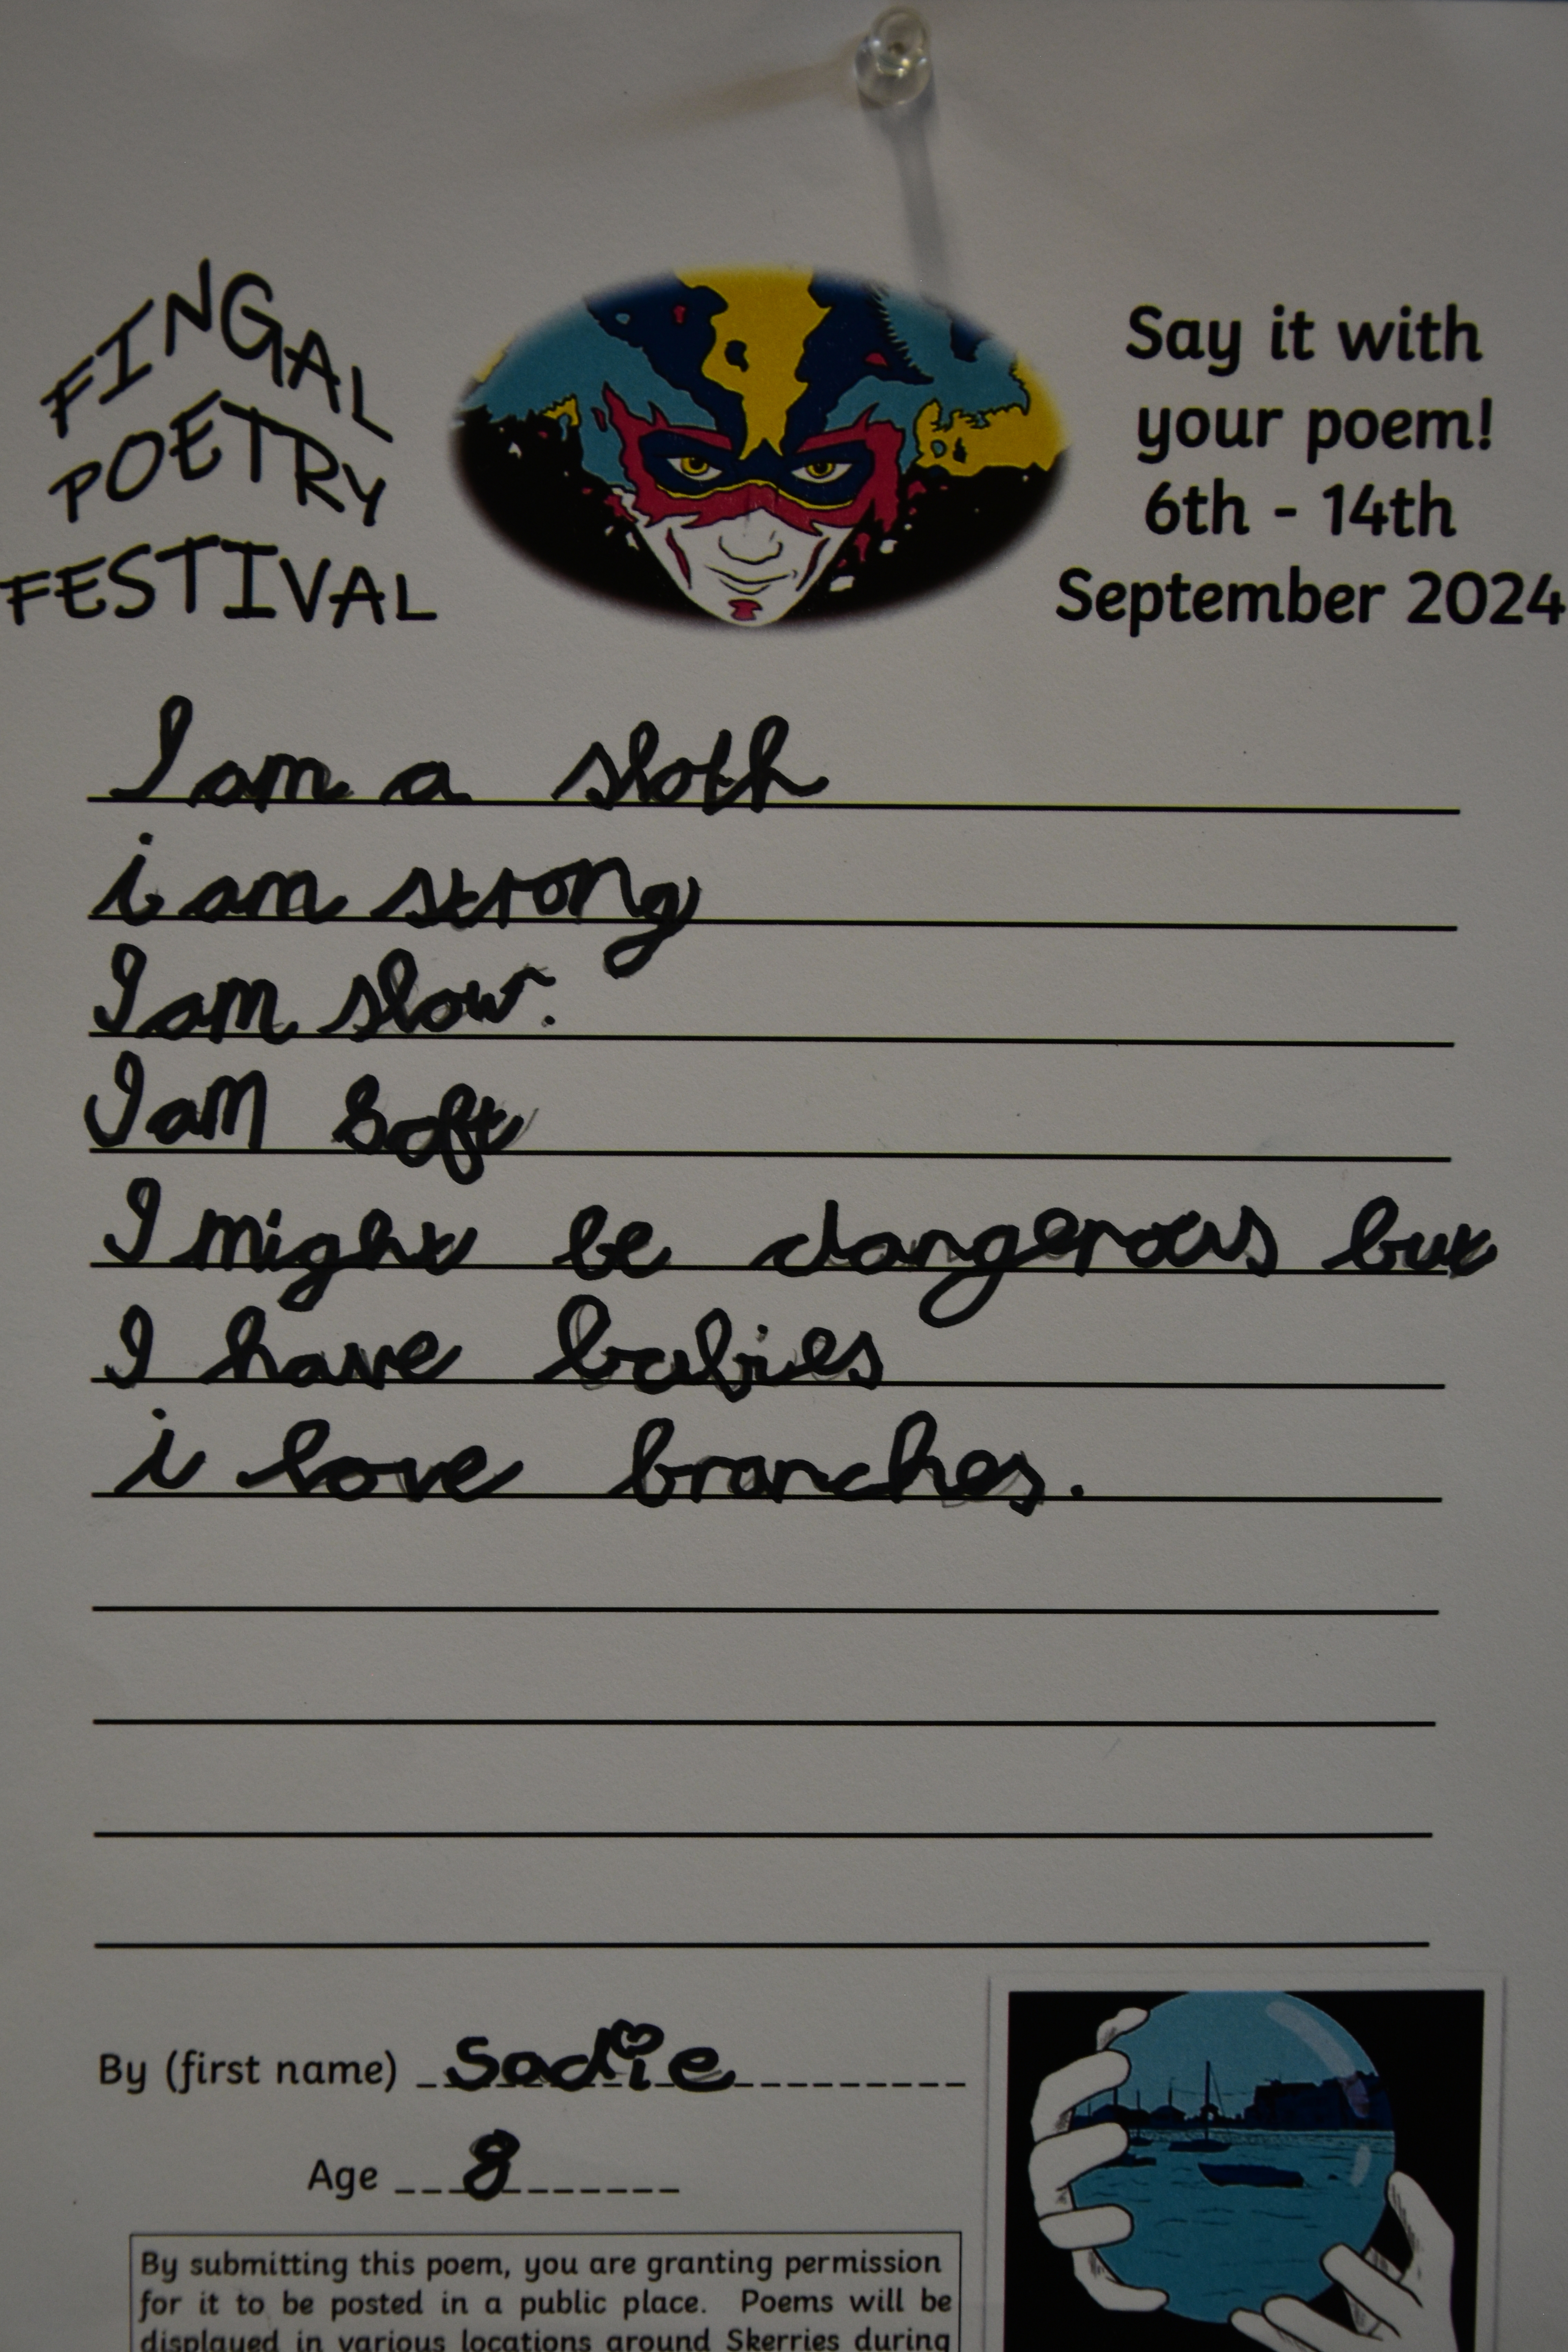 FINGAL
POETRY
FESTIVAL
Say it with
your poem!
6th - 14th
September 2024
I am a sloth
i am strong
I am slow.
I am soft
I might be dangerous but
I have babies
i love branches.
By (first name) Sadie
Age 8
By submitting this poem, you are granting permission
for it to be posted in a public place. Poems will be
displayed in various locations around Skerries during